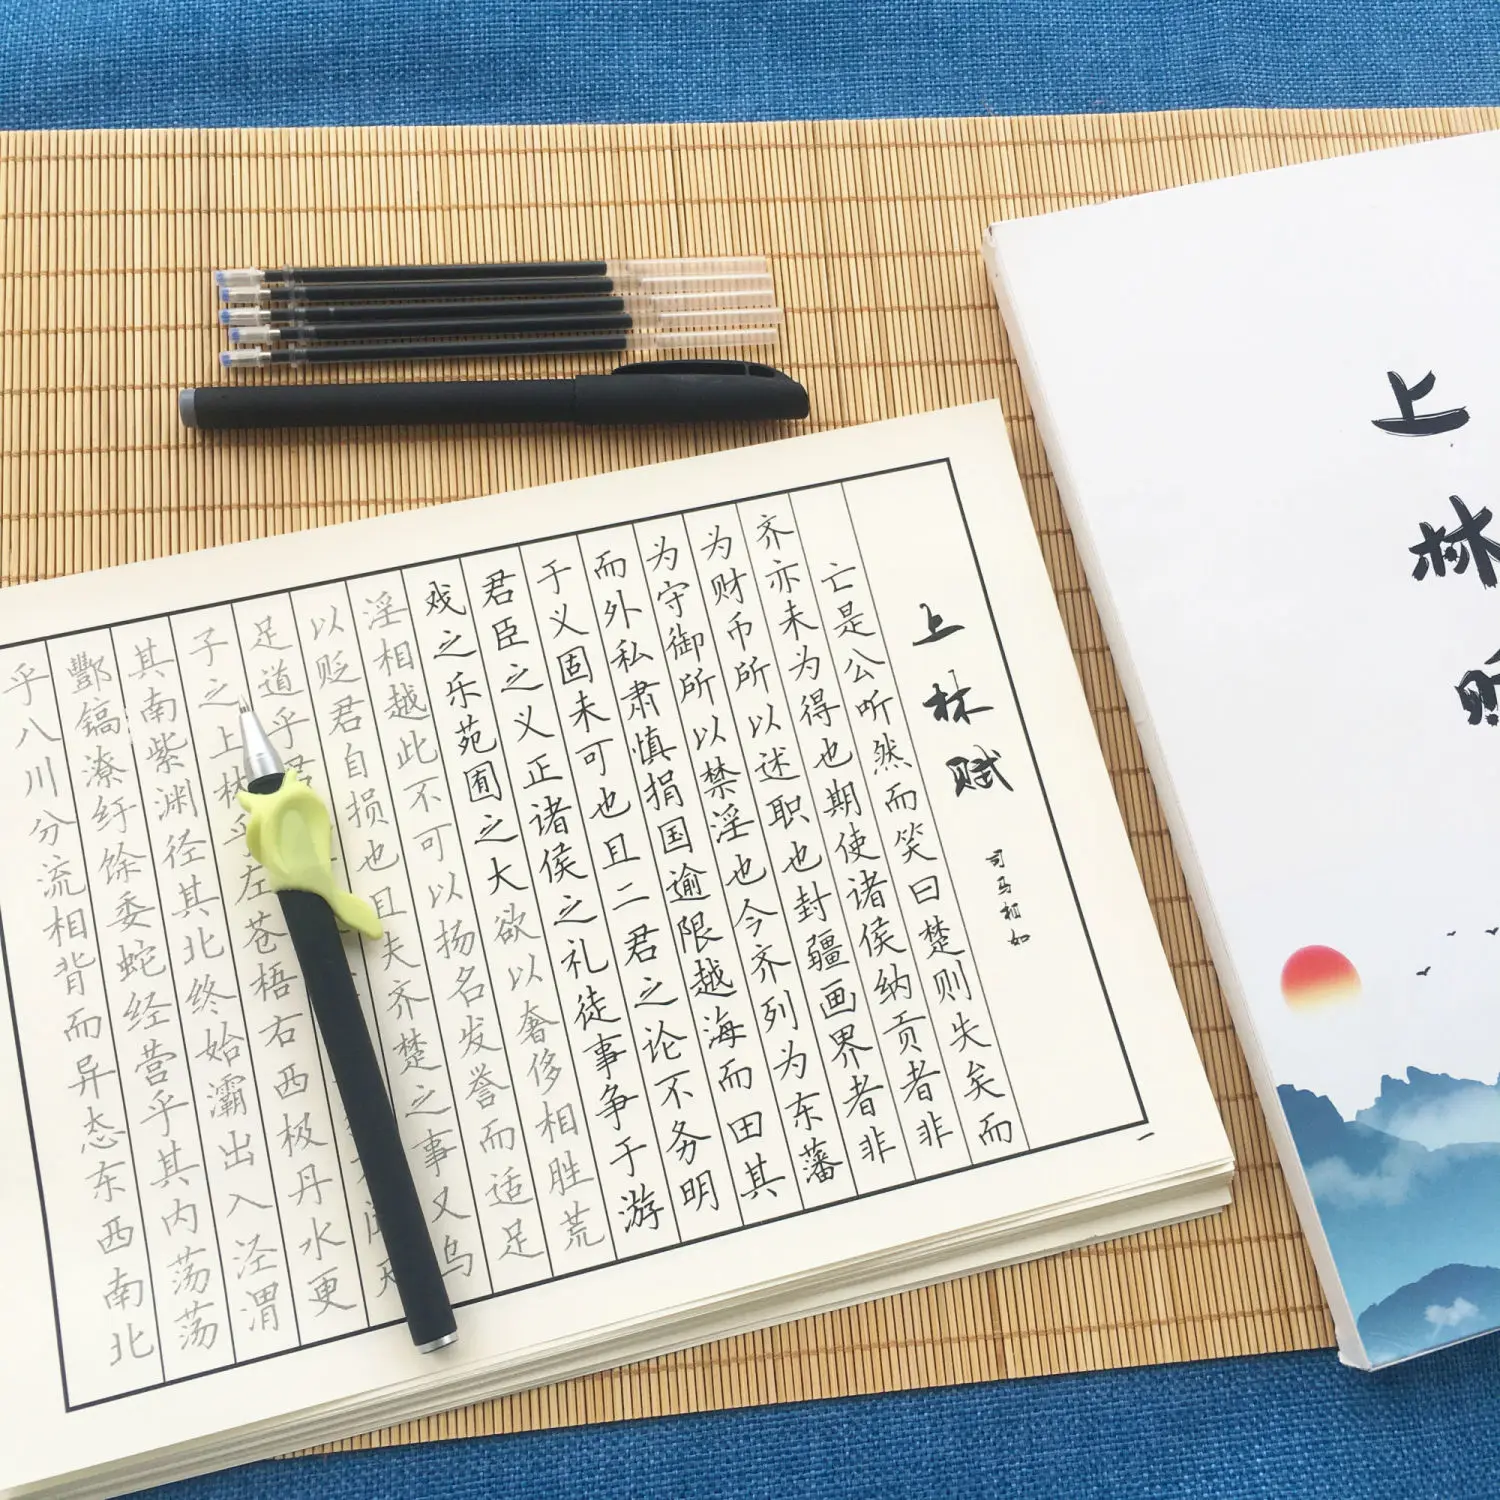 上林赋
司马相如
亡是公听然而笑曰楚则失矣而
齐亦未为得也期使诸侯纳贡者非
为财币所以述职也封疆画界者非
为守御所以禁淫也今齐列为东藩
而外私肃慎捐国逾限越海而田其
于义固未可也且二君之论不务明
君臣之义正诸侯之礼徒事争于游
戏之乐苑囿之大欲以奢侈相胜荒
淫相越此不可以扬名发誉而适足
以贬君自损也且夫齐楚之事又乌
足道乎君
子之上林乎左苍梧右西极丹水更
其南紫渊径其北终始灞出入泾渭
酆镐潦纡馀委蛇经营乎其内荡荡
乎八川分流相背而异态东西南北
一
上林